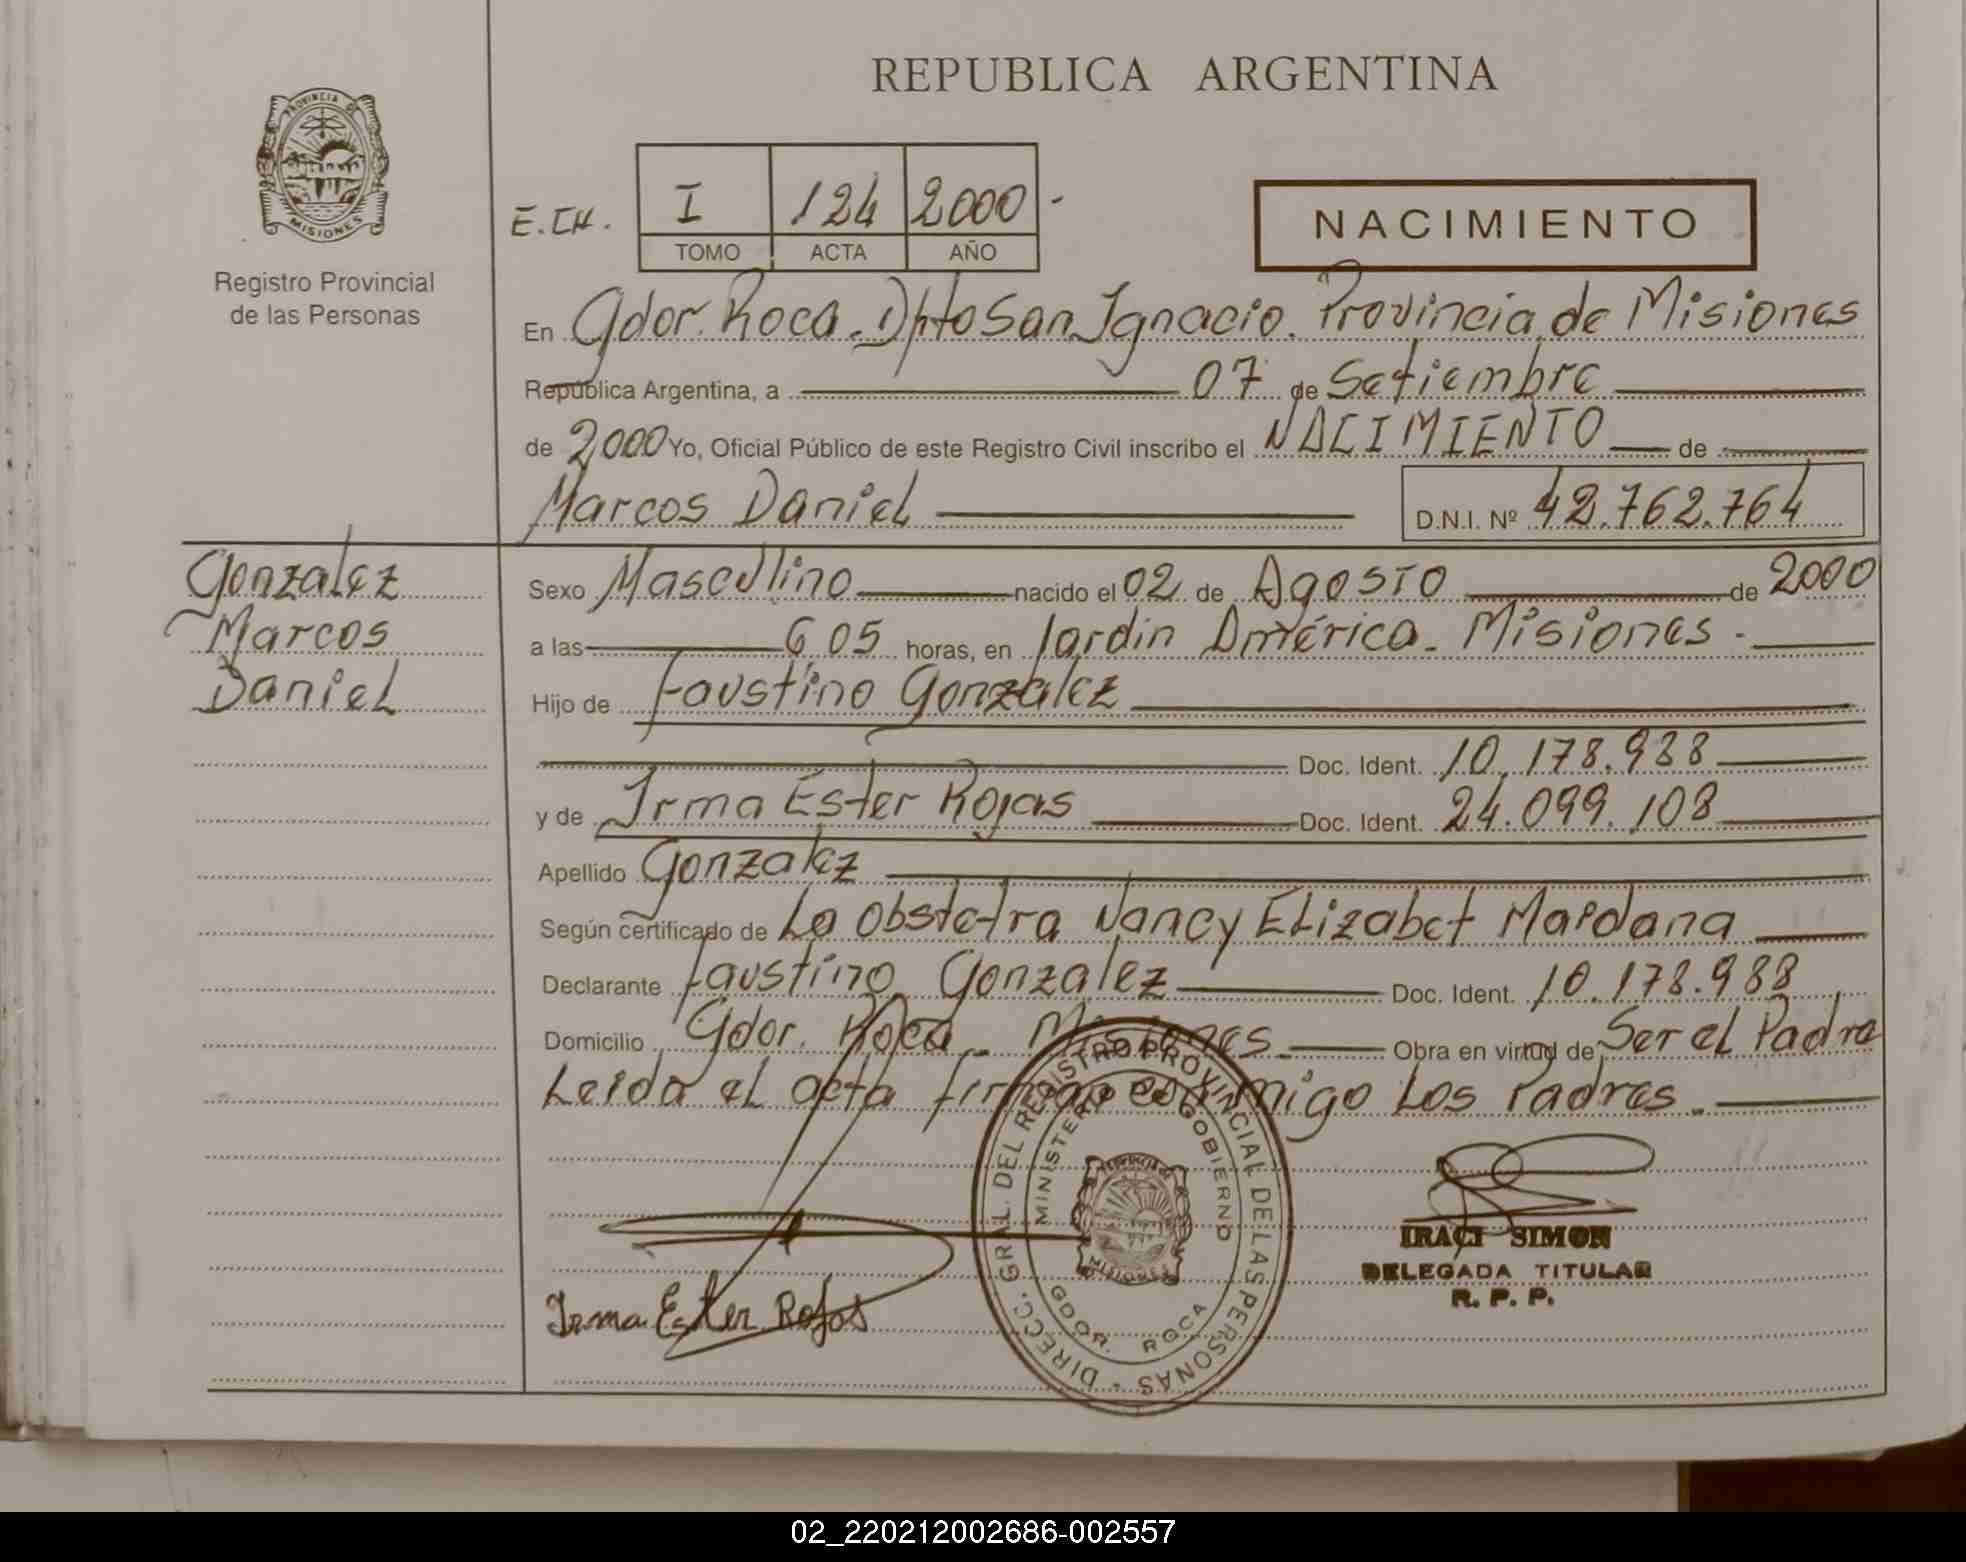 REPUBLICA ARGENTINA
PROVINCIA DE
MISIONES
Registro Provincial
de las Personas
E.CH. I 124 2000 -
TOMO ACTA AÑO
NACIMIENTO
En Gdor. Roca. Dpto San Ignacio. Provincia de Misiones
República Argentina, a 07 de Setiembre
de 2000 Yo, Oficial Público de este Registro Civil inscribo el NACIMIENTO de
Marcos Daniel D.N.I. Nº 42.762.764
Gonzalez
Marcos
Daniel
Sexo Masculino nacido el 02 de Agosto de 2000
a las 6 05 horas, en Jardin América. Misiones.
Hijo de Faustino Gonzalez
Doc. Ident. 10.178.988
y de Irma Ester Rojas Doc. Ident. 24.099.108
Apellido Gonzalez
Según certificado de La Obstetra Nancy Elizabet Maidana
Declarante Faustino Gonzalez Doc. Ident. 10.178.988
Domicilio Gdor. Roca - Misiones. Obra en virtud de Ser el Padre
Leida el acta firman conmigo Los Padres.
DIRECC. GRAL. DEL REGISTRO PROVINCIAL DE LAS PERSONAS -
MINISTERIO DE GOBIERNO
GDOR. ROCA
MISIONES
IRACI SIMON
DELEGADA TITULAR
R. P. P.
Irma Ester Rojas
02_220212002686-002557